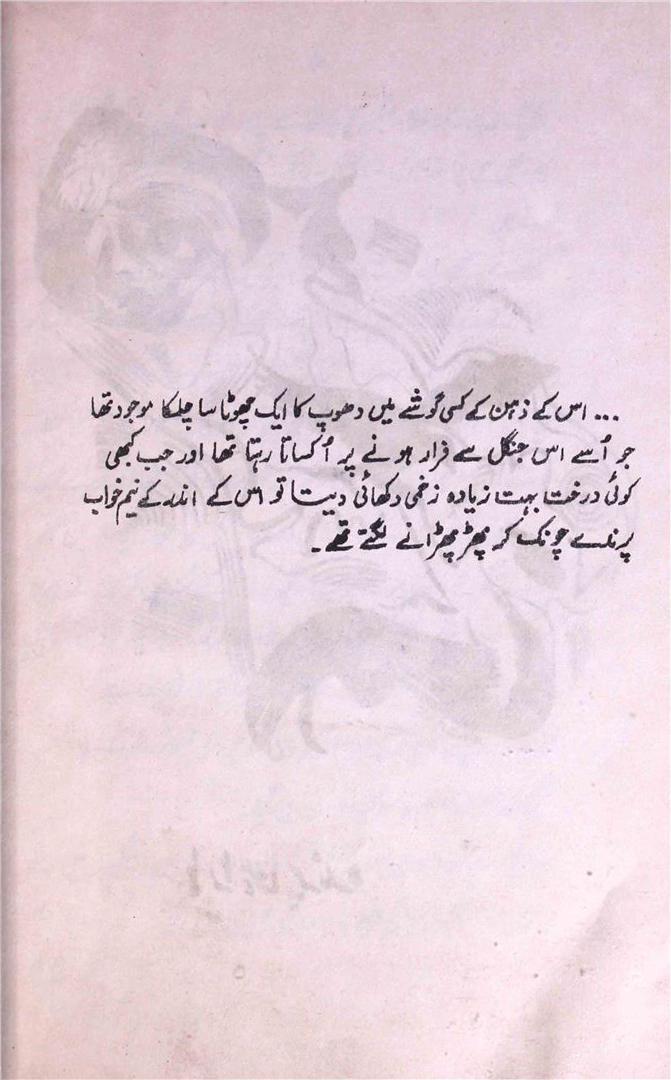 ... اس کے ذہن کے کسی گوشے میں دھوپ کا ایک چھوٹا سا چلکا موجود تھا
جو اُسے اس جنگل سے فرار ہونے پر اُکساتا رہتا تھا اور جب کبھی
کوئی درخت بہت زیادہ زخمی دکھائی دیتا تو اس کے اندر کے نیم خواب
پرندے چونک کر پھڑپھڑانے لگتے تھے۔